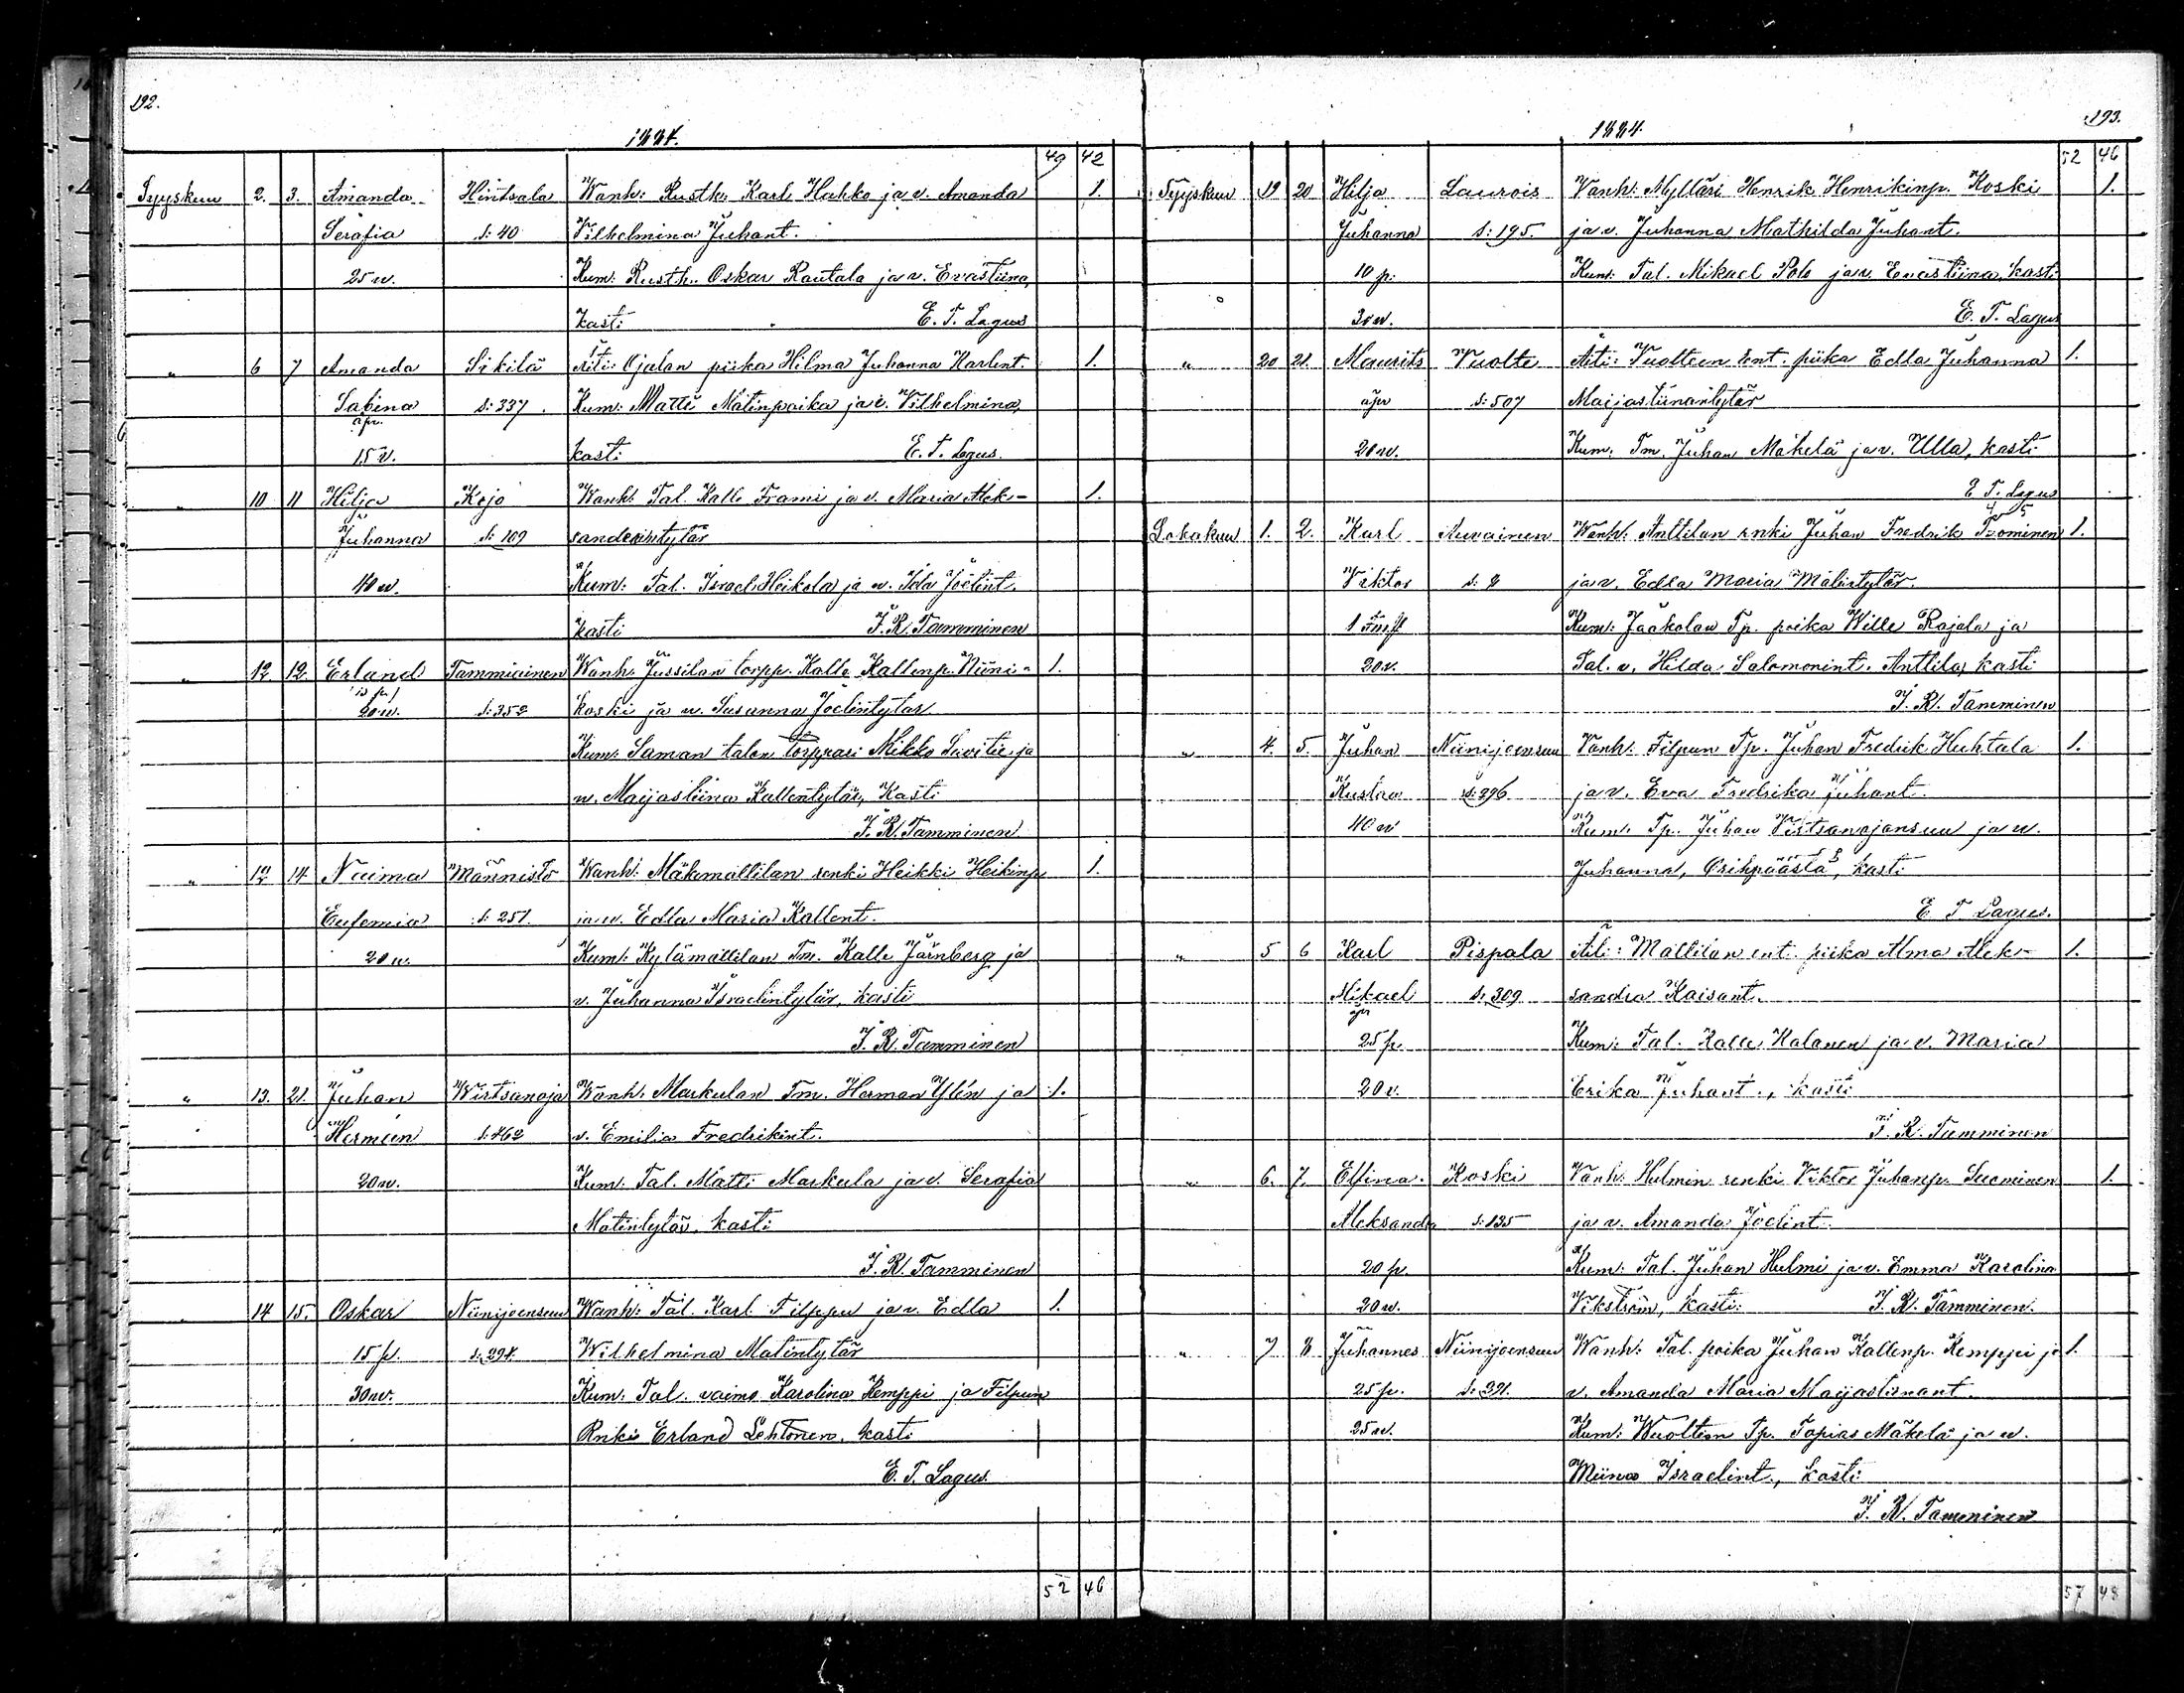 192.
1884.
49 42
Syyskuu 2. 3. Amanda Hintsala Wanh: Rusth. Karl Hahko ja v. Amanda 1.
Serafia s: 40 Vilhelmina Juhant.
25 w. Kum: Rusth. Oskar Rautala ja v. Evastiina,
kasti E. T. Lagus
" 6 7 Amanda Sikilä Äiti: Ojalan piika Hilma Juhanna Karlent. 1.
Sabina s: 337. Kum: Matti Matinpoika ja v. Vilhelmina,
äpr.
15 v. kasti E. T. Lagus.
" 10 11 Hilja Kojo Wanh: Tal. Kalle Frami ja v. Maria Alek- 1.
Juhanna s: 109 sanderintytär
40 w. Kum: Tal. Israel Heikola ja w. Ida Joelint.
kasti J. R. Tamminen
" 12 12 Erland Tammiainen Wanh: Jussilan torpp. Kalle Kallenp. Niini- 1.
15 p.
20 w. s: 352 koski ja w. Susanna Joelintytär
Kum: Saman talon torppari Mikko Savitie ja
w. Maijastiina Kallentytär, Kasti
J. R. Tamminen
" 12 14 Naima Männistö Wanh: Mäkimattilan renki Heikki Heikinp. 1.
Eufemia s: 251. ja w. Edla Maria Kallent.
20 w. Kum: Kylämattilan Tm. Kalle Järnberg ja
v. Juhanna Israelintytär, kasti
J. R. Tamminen
" 13. 21. Juhan Wirtsanoja Wanh: Markulan Tm. Herman Ylén ja 1.
Hermien s: 462 v. Emilia Fredrikint.
20 w. Kum: Tal. Matti Markula ja v. Serafia
Matintytär, kasti
J. R. Tamminen
" 14 15. Oskar Niinijoensuu Wanh: Tal. Karl Filppu ja v. Edla 1.
15 p. s: 294. Wilhelmina Matintytär
30 w. Kum: Tal. vaimo Karolina Kemppi ja Filpun
Rnki Erland Lehtonen, kasti
E. T. Lagus.
52 46
193.
1884.
52 46
Syyskuu 19 20 Hilja Laurois Vanh: Mylläri Henrik Henrikinp. Koski 1.
Juhanna s: 195. ja v. Juhanna Mathilda Juhant.
10 p. Kum: Tal. Mikael Polo ja v. Evastiina, kasti
30 w. E. T. Lagus
" 20 21. Maurits Vuolte Äiti: Vuolteen ent. piika Edla Juhanna 1.
äpr s: 507 Maijastiinantytär
20 w. Kum: Tm. Juhan Mäkelä ja v. Ulla, kasti
E. T. Lagus
Lokakuu 1. 2. Karl Auvainen Wanh: Anttilan rnki Juhan Fredrik Tuominen 1.
Viktor s: 8 ja v. Edla Maria Matintytär.
1 Kum: Jaakolan Tp. poika Wille Rajala ja
20 v. Tal. v. Hilda Salomonint. Anttila, kasti
J. R. Tamminen
" 4. 5. Juhan Niinijoensuu Vanh: Filpun Tp. Juhan Fredrik Huhtala 1.
Kustaa s: 296 ja v. Eva Fredrika Juhant.
40 w Kum: Tp. Juhan Virtsanojansuu ja w.
Juhanna, Orihpäästä, kasti
E T Lagus.
" 5 6 Karl Pispala Äiti: Mattilan ent. piika Alma Alek- 1.
Mikael s: 309 sandra Kaisant.
äpr
25 p. Kum: Tal. Kalle Halanen ja v. Maria
20 v. Erika Juhant., kasti
J. R. Tamminen
" 6. 7. Elfina Koski Vanh: Hulmin renki Viktor Juhanp. Suominen 1.
Aleksandra s: 135 ja v. Amanda Joelint.
20 p. Kum: Tal. Juhan Hulmi ja v. Emma Karolina
20 w. Vikström, kasti: J. R. Tamminen.
" 7 8 Juhannes Niinijoensuu Wanh: Tal. poika Juhan Kallenp. Kemppi ja 1.
25 p. s: 291. v. Amanda Maria Maijastinant.
25 w. Kum: Wuolteen Tp. Topias Mäkelä ja w.
Miina Israelint., kasti
J. R. Tamminen
57 48